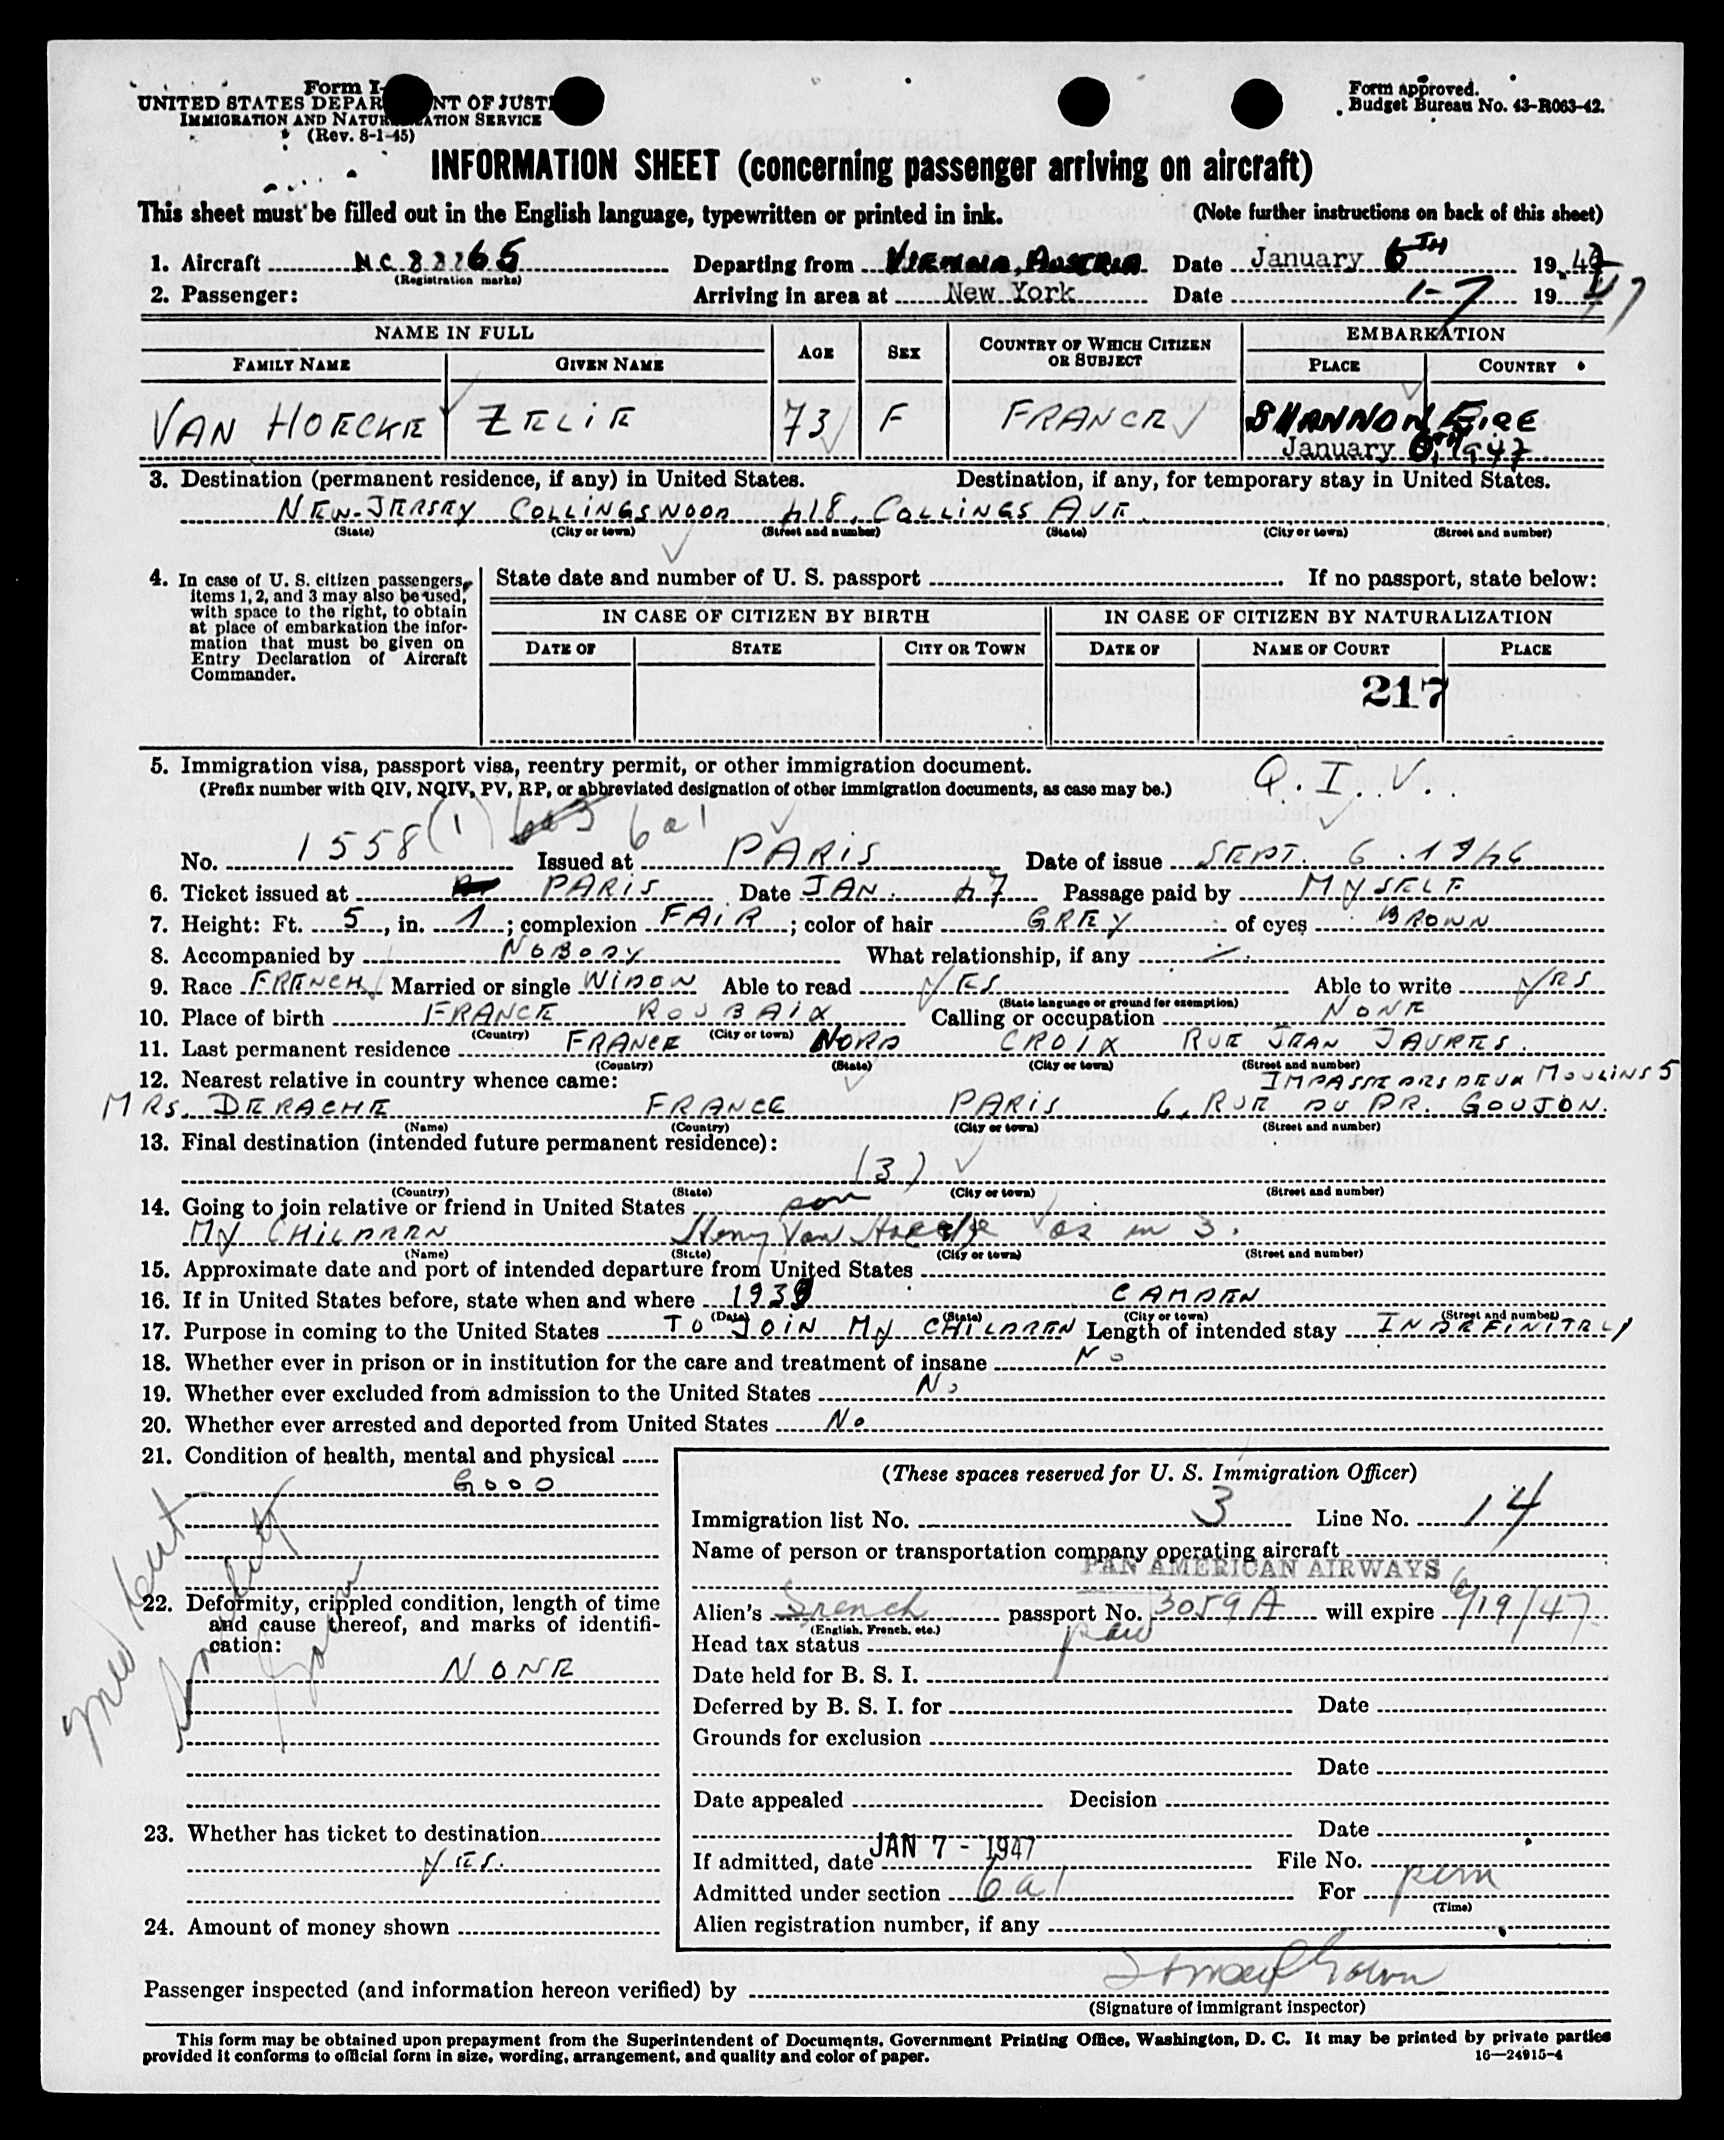 Form I-
UNITED STATES DEPAR NT OF JUSTI
IMMIGRATION AND NATUR ATION SERVICE
(Rev. 8-1-45)
Form approved.
Budget Bureau No. 43-R063-42.
INFORMATION SHEET (concerning passenger arriving on aircraft)
This sheet must be filled out in the English language, typewritten or printed in ink. (Note further instructions on back of this sheet)
1. Aircraft N.C. 88865 Departing from VIENNA, AUSTRIA Date January 6TH 1947
(Registration marks)
2. Passenger: Arriving in area at New York Date 1-7 1947
NAME IN FULL AGE SEX COUNTRY OF WHICH CITIZEN OR SUBJECT EMBARKATION
FAMILY NAME GIVEN NAME PLACE COUNTRY
VAN HOECKE ZELIE 73 F FRANCE SHANNON EIRE
January 6TH, 1947
3. Destination (permanent residence, if any) in United States. Destination, if any, for temporary stay in United States.
NEW-JERSEY COLLINGSWOOD 418, COLLINGS AVE.
(State) (City or town) (Street and number) (State) (City or town) (Street and number)
4. In case of U. S. citizen passengers, items 1, 2, and 3 may also be used, with space to the right, to obtain at place of embarkation the information that must be given on Entry Declaration of Aircraft Commander.
State date and number of U. S. passport If no passport, state below:
IN CASE OF CITIZEN BY BIRTH IN CASE OF CITIZEN BY NATURALIZATION
DATE OF STATE CITY OR TOWN DATE OF NAME OF COURT PLACE
217
5. Immigration visa, passport visa, reentry permit, or other immigration document. Q. I. V.
(Prefix number with QIV, NQIV, PV, RP, or abbreviated designation of other immigration documents, as case may be.)
No. 1558 (1) 6a3 6a1 Issued at PARIS Date of issue SEPT. 6. 1946
6. Ticket issued at PARIS Date JAN. 47 Passage paid by MYSELF
7. Height: Ft. 5, in. 1; complexion FAIR; color of hair GREY of eyes BROWN
8. Accompanied by NOBODY What relationship, if any /.
9. Race FRENCH Married or single WIDOW Able to read YES Able to write YES
(State language or ground for exemption)
10. Place of birth FRANCE ROUBAIX Calling or occupation NONE
(Country) (City or town)
11. Last permanent residence FRANCE NORD CROIX RUE JEAN JAURES.
(Country) (State) (City or town) (Street and number)
12. Nearest relative in country whence came: IMPASSE DES DEUX MOULINS 5
MRS. DERACHE FRANCE PARIS 6, RUE DU DR. GOUJON.
(Name) (Country) (City or town) (Street and number)
13. Final destination (intended future permanent residence):
(3)
(Country) (State) (City or town) (Street and number)
14. Going to join relative or friend in United States son
MY CHILDREN Henry Van Hoecke as in 3.
(Name) (State) (City or town) (Street and number)
15. Approximate date and port of intended departure from United States
16. If in United States before, state when and where 1939 CAMDEN
(Date) (State) (City or town) (Street and number)
17. Purpose in coming to the United States TO JOIN MY CHILDREN Length of intended stay INDEFINITELY
18. Whether ever in prison or in institution for the care and treatment of insane NO
19. Whether ever excluded from admission to the United States NO
20. Whether ever arrested and deported from United States NO
21. Condition of health, mental and physical
GOOD
Med Cert
22. Deformity, crippled condition, length of time and cause thereof, and marks of identification:
NONE
23. Whether has ticket to destination
YES.
24. Amount of money shown
(These spaces reserved for U. S. Immigration Officer)
Immigration list No. 3 Line No. 14
Name of person or transportation company operating aircraft
PAN AMERICAN AIRWAYS
Alien's French passport No. 3059A will expire 6/19/47
(English, French, etc.)
Head tax status
Date held for B. S. I.
Deferred by B. S. I. for Date
Grounds for exclusion
Date
Date appealed Decision
Date
If admitted, date JAN 7 - 1947 File No.
Admitted under section 6a1 For perm
(Time)
Alien registration number, if any
Passenger inspected (and information hereon verified) by
(Signature of immigrant inspector)
This form may be obtained upon prepayment from the Superintendent of Documents, Government Printing Office, Washington, D. C. It may be printed by private parties
provided it conforms to official form in size, wording, arrangement, and quality and color of paper. 16—24915-4